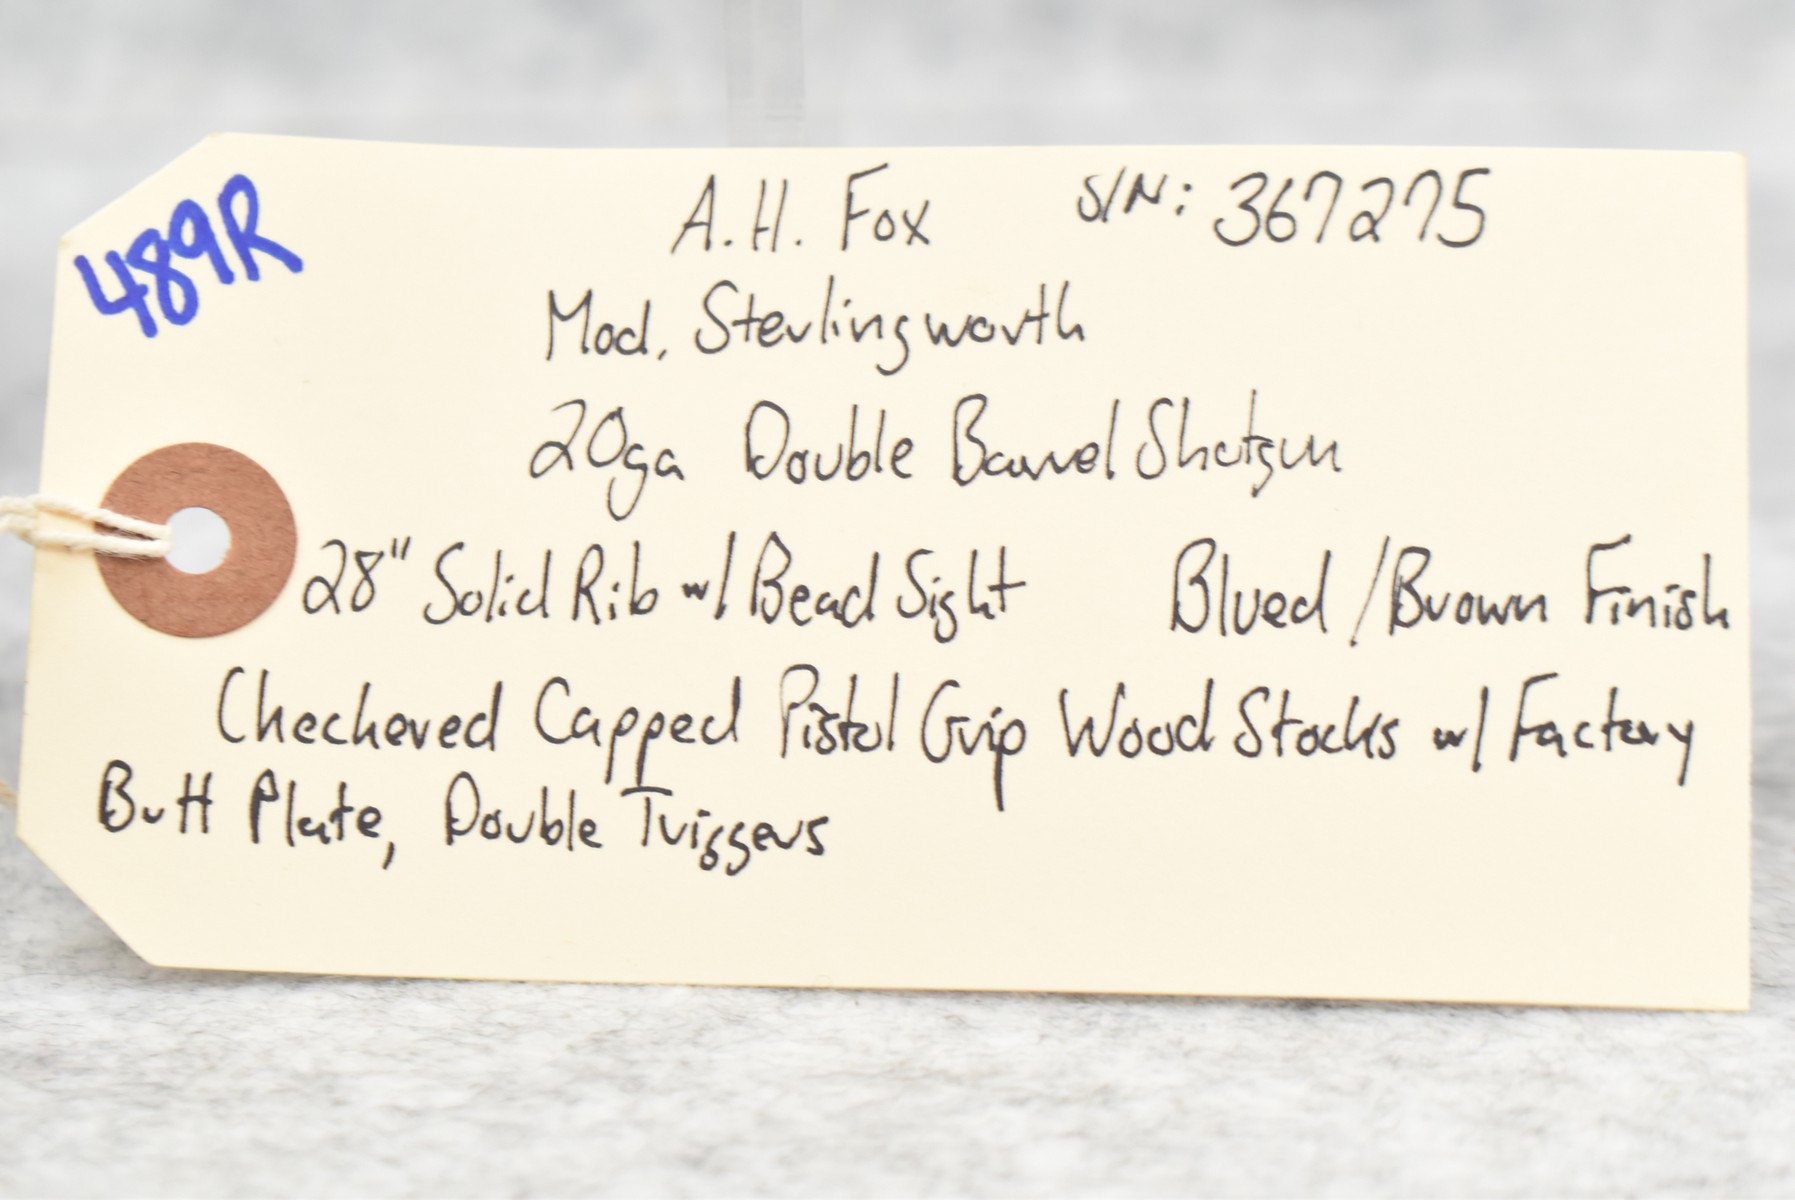 489R
A.H. Fox S/N: 367275
Mod. Sterlingworth
20ga Double Barrel Shotgun
28" Solid Rib w/ Bead Sight Blued/Brown Finish
Checkered Capped Pistol Grip Wood Stocks w/ Factory
Butt Plate, Double Triggers